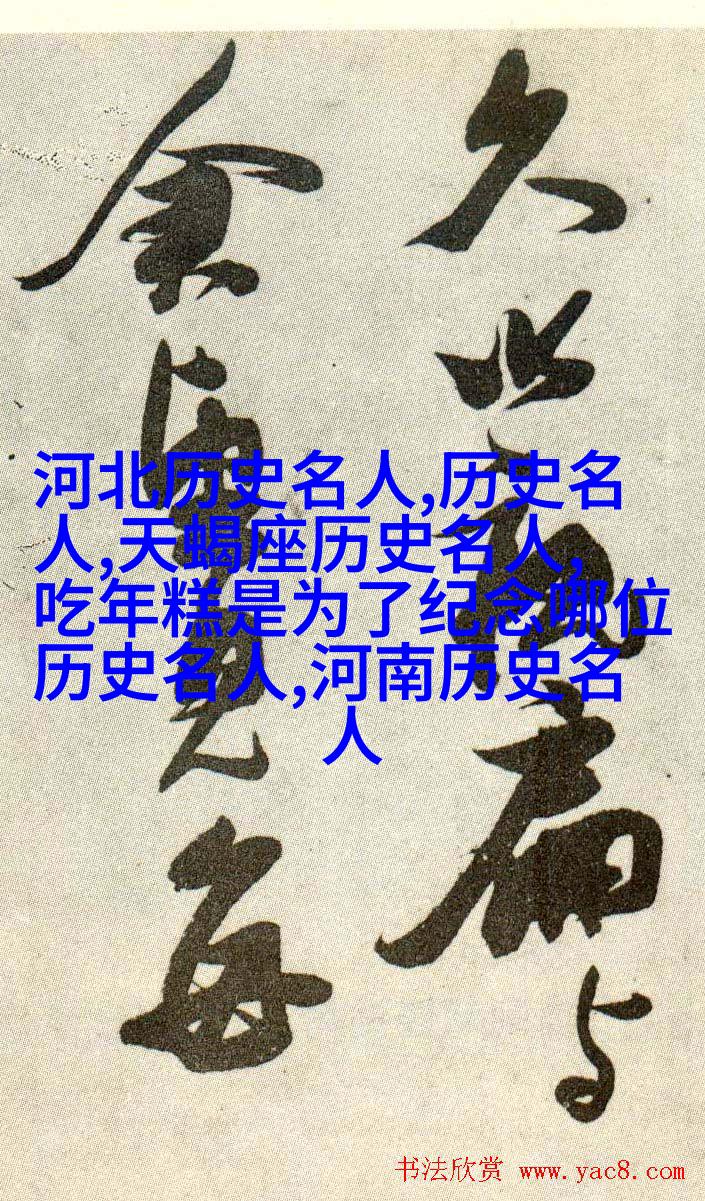 久扁与
見每
河北历史名人,历史名
人,天蝎座历史名人,
吃年糕是为了纪念哪位
历史名人,河南历史名
人
书法欣赏 www.yac8.com